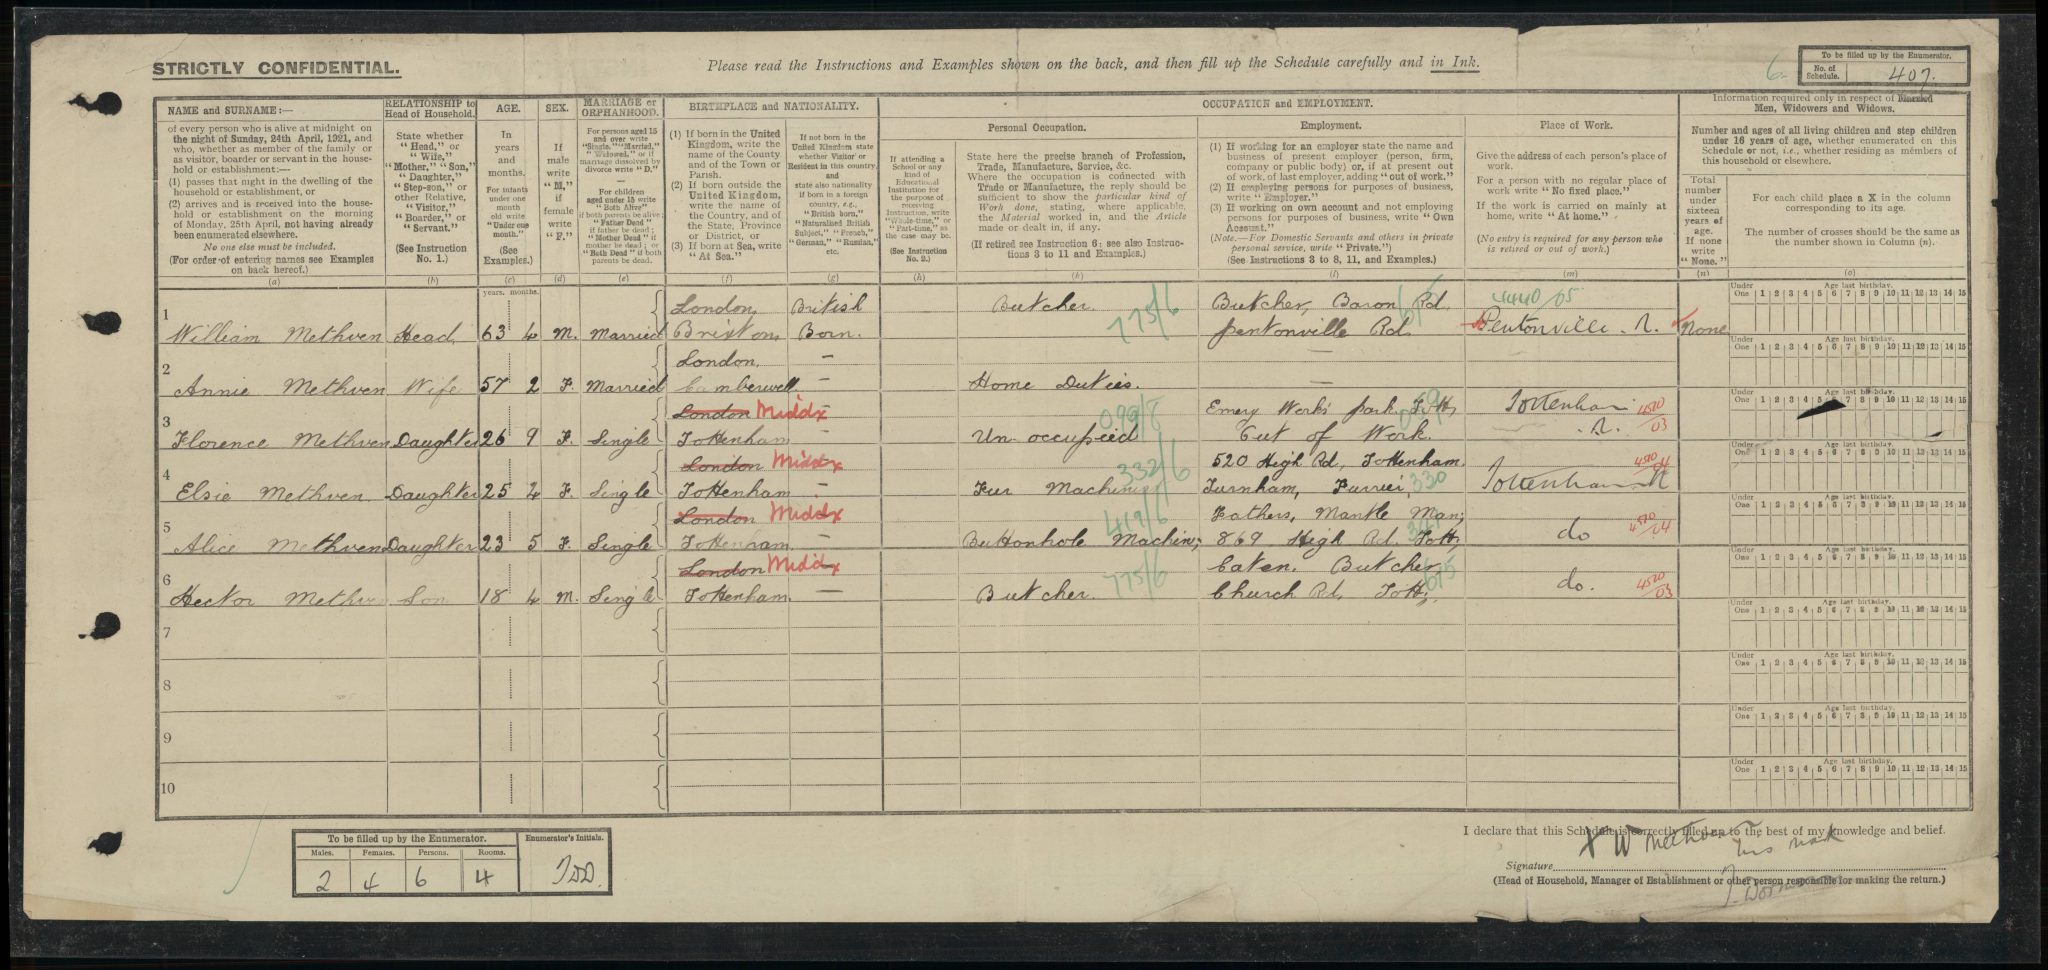 STRICTLY CONFIDENTIAL.
Please read the Instructions and Examples shown on the back, and then fill up the Schedule carefully and in Ink.
6
To be filled up by the Enumerator.
No. of Schedule. 407.
NAME and SURNAME:—
of every person who is alive at midnight on
the night of Sunday, 24th April, 1921, and
who, whether as member of the family or
as visitor, boarder or servant in the house-
hold or establishment:—
(1) passes that night in the dwelling of the
household or establishment, or
(2) arrives and is received into the house-
hold or establishment on the morning
of Monday, 25th April, not having already
been enumerated elsewhere.
No one else must be included.
(For order of entering names see Examples
on back hereof.)
(a)
RELATIONSHIP to
Head of Household.
State whether
"Head," or
"Wife,"
"Mother," "Son,"
"Daughter,"
"Step-son," or
other Relative,
"Visitor,"
"Boarder," or
"Servant."
(See Instruction
No. 1.)
(b)
AGE.
In
years
and
months.
For infants
under one
month
old write
"Under one
month."
(See
Examples.)
(c)
SEX.
If
male
write
"M,"
if
female
write
"F."
(d)
MARRIAGE or
ORPHANHOOD.
For persons aged 15
and over write
"Single," "Married,"
"Widowed," or if
marriage dissolved by
divorce write "D."
For children
aged under 15 write
"Both Alive"
if both parents be alive;
"Father Dead"
if father be dead;
"Mother Dead" if
mother be dead; or
"Both Dead" if both
parents be dead.
(e)
BIRTHPLACE and NATIONALITY.
(1) If born in the United
Kingdom, write the
name of the County
and of the Town or
Parish.
(2) If born outside the
United Kingdom,
write the name of
the Country, and of
the State, Province
or District, or
(3) If born at Sea, write
"At Sea."
(f)
If not born in the
United Kingdom state
whether Visitor or
Resident in this country,
and
state also nationality
if born in a foreign
country, e.g.,
"British born,"
"Naturalised British
Subject," "French,"
"German," "Russian,"
etc.
(g)
OCCUPATION and EMPLOYMENT.
If attending a
School or any
kind of
Educational
Institution for
the purpose of
receiving
Instruction, write
"Whole-time," or
"Part-time," as
the case may be.
(See Instruction
No. 2.)
(h)
Personal Occupation.
State here the precise branch of Profession,
Trade, Manufacture, Service, &c.
Where the occupation is connected with
Trade or Manufacture, the reply should be
sufficient to show the particular kind of
Work done, stating, where applicable,
the Material worked in, and the Article
made or dealt in, if any.
(If retired see Instruction 6; see also Instruc-
tions 3 to 11 and Examples.)
(k)
Employment.
(1) If working for an employer state the name and
business of present employer (person, firm,
company or public body) or, if at present out
of work, of last employer, adding "out of work."
(2) If employing persons for purposes of business,
write "Employer."
(3) If working on own account and not employing
persons for purposes of business, write "Own
Account."
(Note.—For Domestic Servants and others in private
personal service, write "Private.")
(See Instructions 3 to 8, 11, and Examples.)
(l)
Place of Work.
Give the address of each person's place of
work.
For a person with no regular place of
work write "No fixed place."
If the work is carried on mainly at
home, write "At home."
(No entry is required for any person who
is retired or out of work.)
(m)
Information required only in respect of Married
Men, Widowers and Widows.
Number and ages of all living children and step children
under 16 years of age, whether enumerated on this
Schedule or not, i.e., whether residing as members of
this household or elsewhere.
Total
number
under
sixteen
years of
age.
If none
write
"None."
(n)
For each child place a X in the column
corresponding to its age.
The number of crosses should be the same as
the number shown in Column (n).
(o)
years. months.
1 London, British Butcher. 775/6 Butcher, Baron Rd. 4440/05
William Methven Head 63 4 M. Married Brixton, Born. pentonville Rd. Pentonville. N. None
2 London. — —
Annie Methven Wife 57 2 F. Married Camberwell — Home Duties. —
3 London Middx — Emery Works park Tott, Tottenham 4520/03
Florence Methven Daughter 26 9 F. Single Tottenham — Un-occupied Out of Work. N.
4 London Middx 332/6 520 High Rd, Tottenham. 4520/04
Elsie Methven Daughter 25 4 F. Single Tottenham - Fur Machinist Turnham, Furrier, 330 Tottenham N
5 London Middx 419/6 Fathers, Mantle Man; 4520/04
Alice Methven Daughter 23 5 F. Single Tottenham - Buttonhole Machin; 869 High Rd. Tott, do
6 London Middx 775/6 Caten. Butcher, 4520/03
Hector Methven Son 18 4 M. Single Tottenham. — Butcher. Church Rd, Tott; do.
7
8
9
10
Under One Age last birthday. 1 2 3 4 5 6 7 8 9 10 11 12 13 14 15
Under One Age last birthday. 1 2 3 4 5 6 7 8 9 10 11 12 13 14 15
Under One Age last birthday. 1 2 3 4 5 6 7 8 9 10 11 12 13 14 15
Under One Age last birthday. 1 2 3 4 5 6 7 8 9 10 11 12 13 14 15
Under One Age last birthday. 1 2 3 4 5 6 7 8 9 10 11 12 13 14 15
Under One Age last birthday. 1 2 3 4 5 6 7 8 9 10 11 12 13 14 15
Under One Age last birthday. 1 2 3 4 5 6 7 8 9 10 11 12 13 14 15
Under One Age last birthday. 1 2 3 4 5 6 7 8 9 10 11 12 13 14 15
Under One Age last birthday. 1 2 3 4 5 6 7 8 9 10 11 12 13 14 15
Under One Age last birthday. 1 2 3 4 5 6 7 8 9 10 11 12 13 14 15
To be filled up by the Enumerator.
Males. Females. Persons. Rooms.
2 4 6 4
Enumerator's Initials.
I declare that this Schedule is correctly filled up to the best of my knowledge and belief.
X W Methven
his mark
Signature
(Head of Household, Manager of Establishment or other person responsible for making the return.)